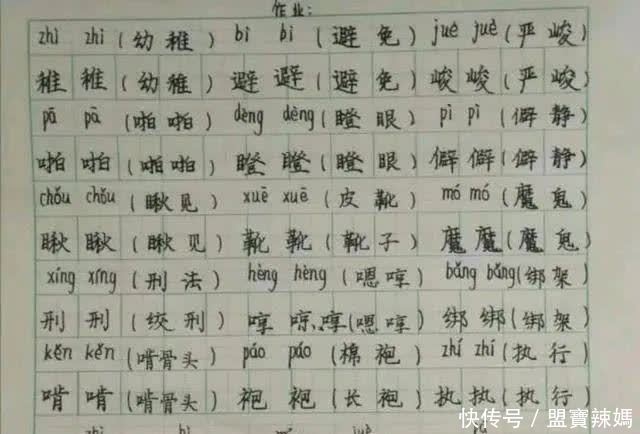 作业：
zhì zhì (幼稚) bì bì (避免) juè juè (严峻)
稚 稚 (幼稚) 避 避 (避免) 峻 峻 (严峻)
pā pā (啪啪) dèng dèng (瞪眼) pì pì (僻静)
啪 啪 (啪啪) 瞪 瞪 (瞪眼) 僻 僻 (僻静)
chǒu chǒu (瞅见) xuē xuē (皮靴) mó mó (魔鬼)
瞅 瞅 (瞅见) 靴 靴 (靴子) 魔 魔 (魔鬼)
xíng xíng (刑法) hèng hèng (嗯哼) bǎng bǎng (绑架)
刑 刑 (绞刑) 哼 哼、哼 (嗯哼) 绑 绑 (绑架)
kěn kěn (啃骨头) páo páo (棉袍) zhí zhí (执行)
啃 啃 (啃骨头) 袍 袍 (长袍) 执 执 (执行)
快传号 / 盟寶辣媽